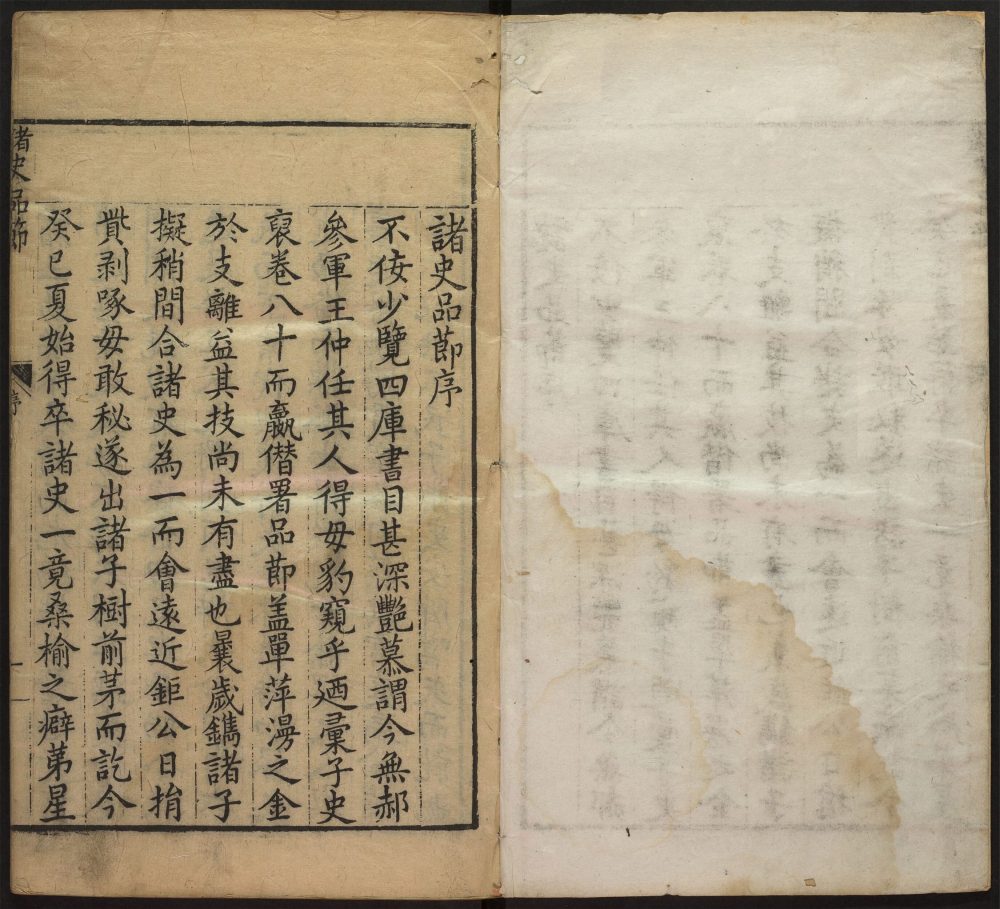 諸史品節序
不侫少覽四庫書目甚深艷慕謂今無郝
參軍王仲任其人得毋豹窺乎廼彚子史
裒卷八十而羸僣署品節盖單萍漫之金
於支離益其技尚未有盡也曩歲鐫諸子
擬稍間合諸史為一而會遠近鉅公日捐
貲剥啄毋敢秘遂出諸子樹前茅而訖今
癸巳夏始得卒諸史一竟桑榆之癖苐星
諸史品節
序
一